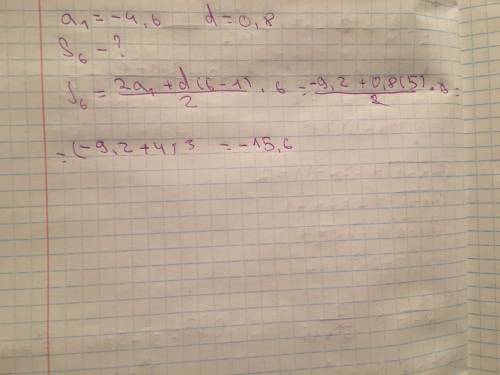 a₁ = -4,6 d = 0,8
S₆ - ?
S₆ = (2a₁ + d(6-1))/2 · 6 = (-9,2 + 0,8(5))/2 · 6 =
= (-9,2 + 4) 3 = -15,6